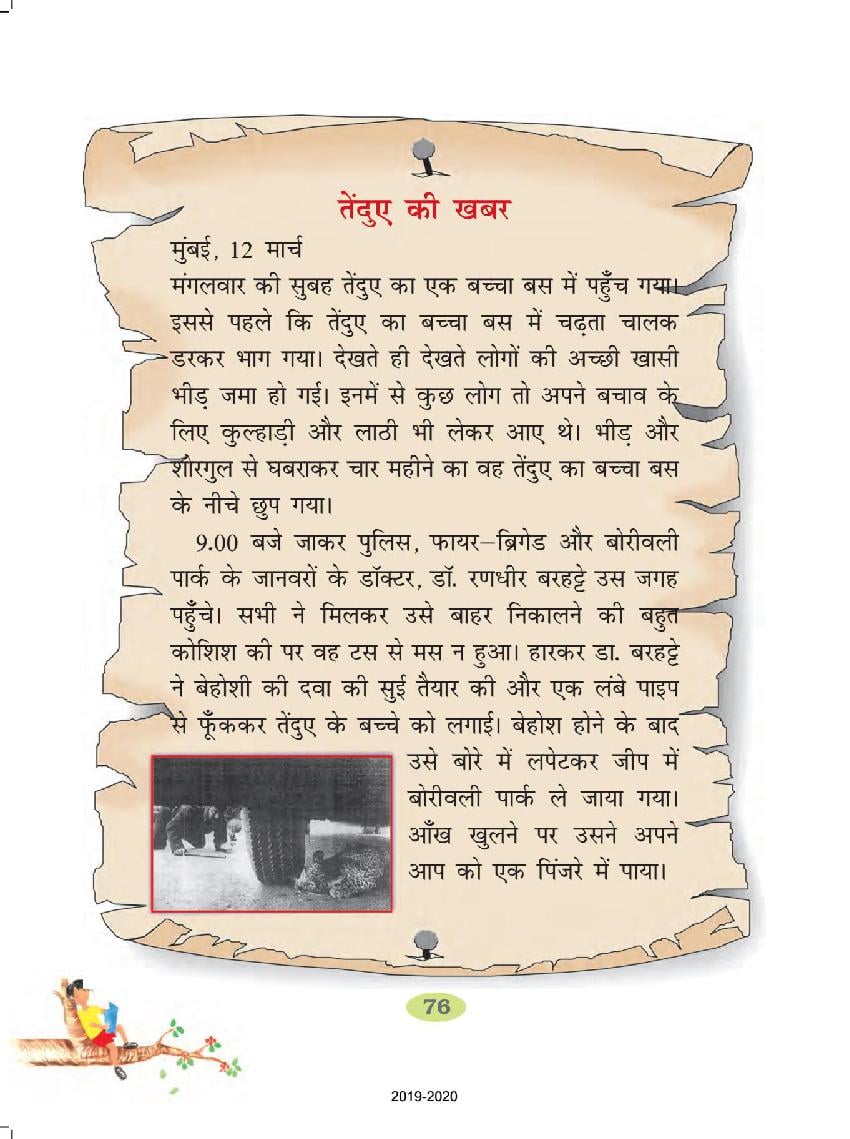 तेंदुए की खबर
मुंबई, 12 मार्च
मंगलवार की सुबह तेंदुए का एक बच्चा बस में पहुँच गया।
इससे पहले कि तेंदुए का बच्चा बस में चढ़ता चालक
डरकर भाग गया। देखते ही देखते लोगों की अच्छी खासी
भीड़ जमा हो गई। इनमें से कुछ लोग तो अपने बचाव के
लिए कुल्हाड़ी और लाठी भी लेकर आए थे। भीड़ और
शोरगुल से घबराकर चार महीने का वह तेंदुए का बच्चा बस
के नीचे छुप गया।
9.00 बजे जाकर पुलिस, फायर–ब्रिगेड और बोरीवली
पार्क के जानवरों के डॉक्टर, डॉ. रणधीर बरहट्टे उस जगह
पहुँचे। सभी ने मिलकर उसे बाहर निकालने की बहुत
कोशिश की पर वह टस से मस न हुआ। हारकर डा. बरहट्टे
ने बेहोशी की दवा की सुई तैयार की और एक लंबे पाइप
से फूँककर तेंदुए के बच्चे को लगाई। बेहोश होने के बाद
उसे बोरे में लपेटकर जीप में
बोरीवली पार्क ले जाया गया।
आँख खुलने पर उसने अपने
आप को एक पिंजरे में पाया।
76
2019-2020